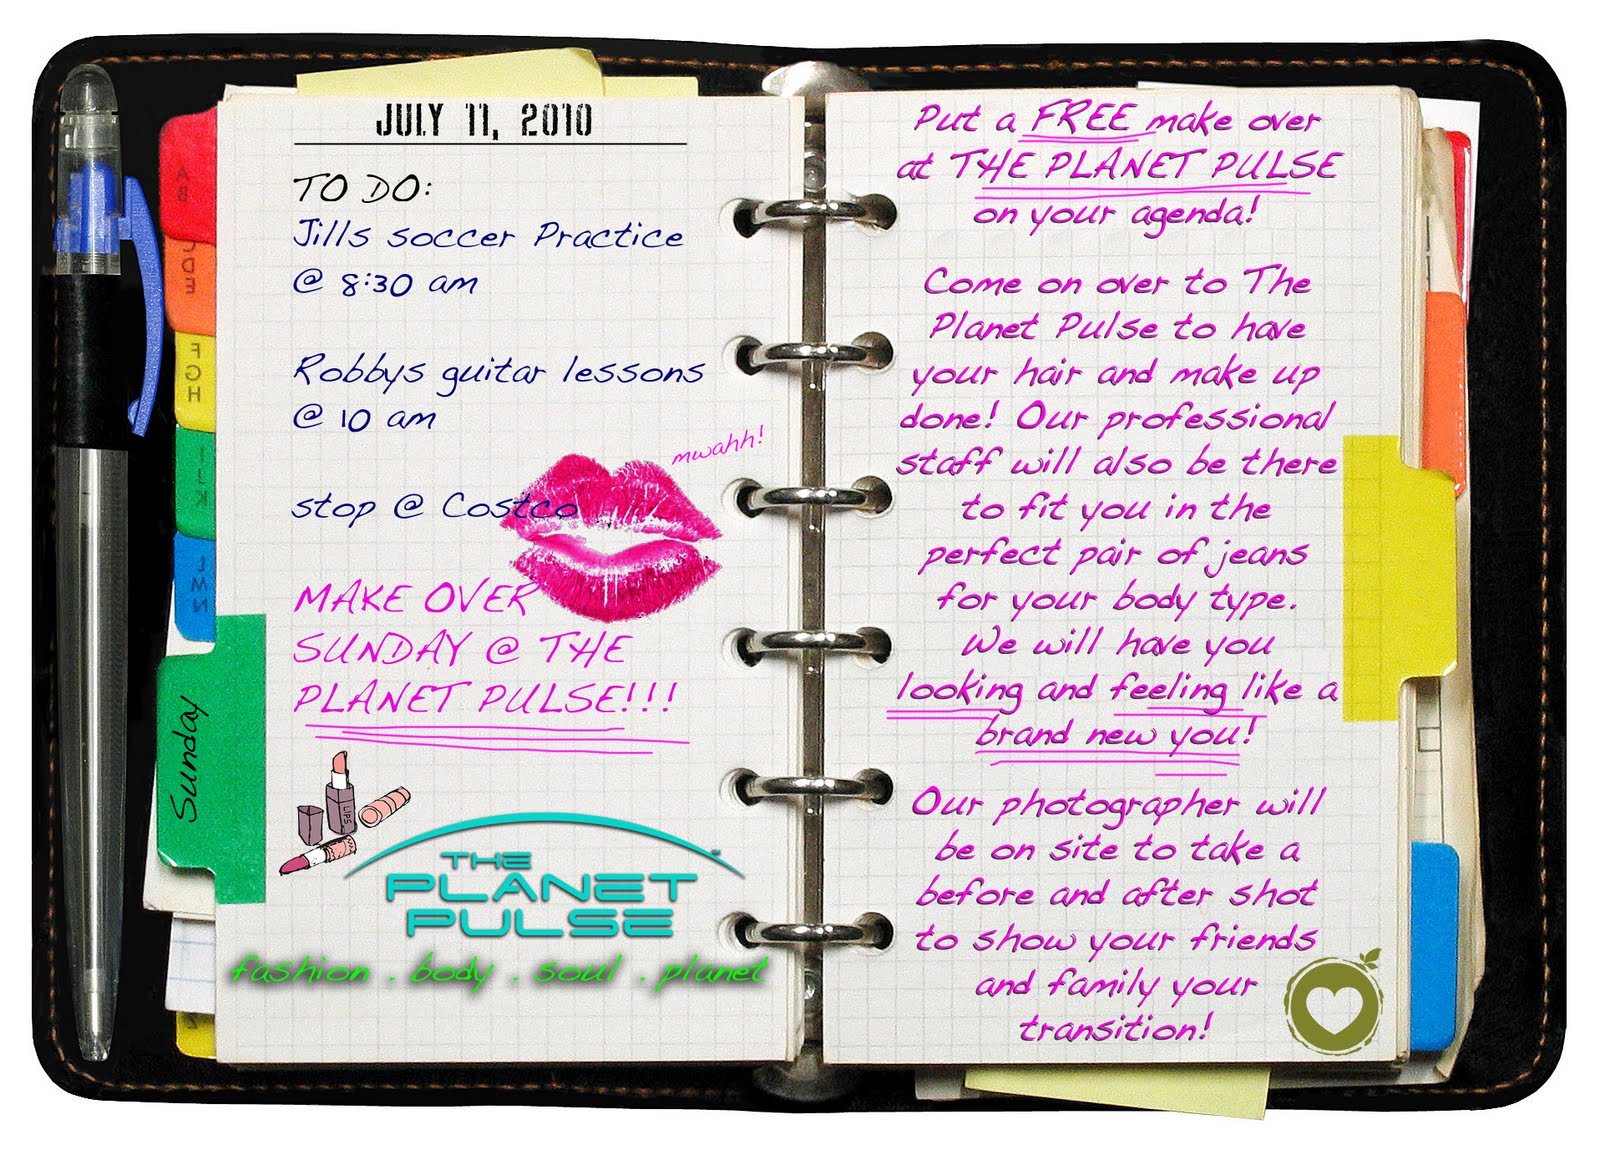 JULY 11, 2010
TO DO:
Jills soccer Practice
@ 8:30 am
Robbys guitar lessons
@ 10 am
mwahh!
stop @ Costco
MAKE OVER
SUNDAY @ THE
PLANET PULSE!!!
LIPS
THE
PLANET
PULSE
fashion . body . soul . planet
Sunday
A B
C D E
F G H
I J K
L M N
Put a FREE make over
at THE PLANET PULSE
on your agenda!
Come on over to The
Planet Pulse to have
your hair and make up
done! Our professional
staff will also be there
to fit you in the
perfect pair of jeans
for your body type.
We will have you
looking and feeling like a
brand new you!
Our photographer will
be on site to take a
before and after shot
to show your friends
and family your
transition!